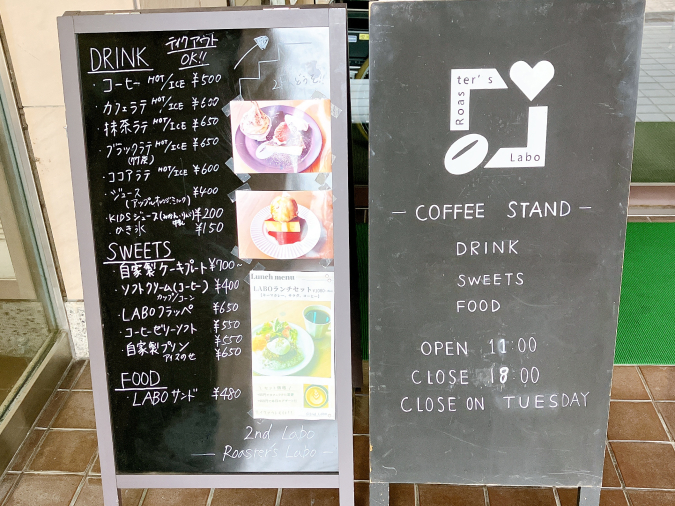 DRINK テイクアウト OK!!
・コーヒー HOT/ICE ¥500
・カフェラテ HOT/ICE ¥600
・抹茶ラテ HOT/ICE ¥650
・ブラックラテ HOT/ICE ¥650
(竹炭)
・ココアラテ HOT/ICE ¥600
・ジュース ¥400
(アップル・オレンジ・ミルク)
・KIDSジュース ¥200
¥150
SWEETS
・自家製ケーキプレート ¥700～
・ソフトクリーム(コーヒー) ¥400
カップ/コーン
・LABOフラッペ ¥650
・コーヒーゼリーソフト ¥550
・自家製プリン ¥550
アイスのせ ¥650
FOOD
・LABOサンド ¥480
Lunch menu
LABOランチセット
2nd Labo
— Roaster's Labo —
Roaster's
Labo
— COFFEE STAND —
DRINK
SWEETS
FOOD
OPEN 11:00
CLOSE 18:00
CLOSE ON TUESDAY